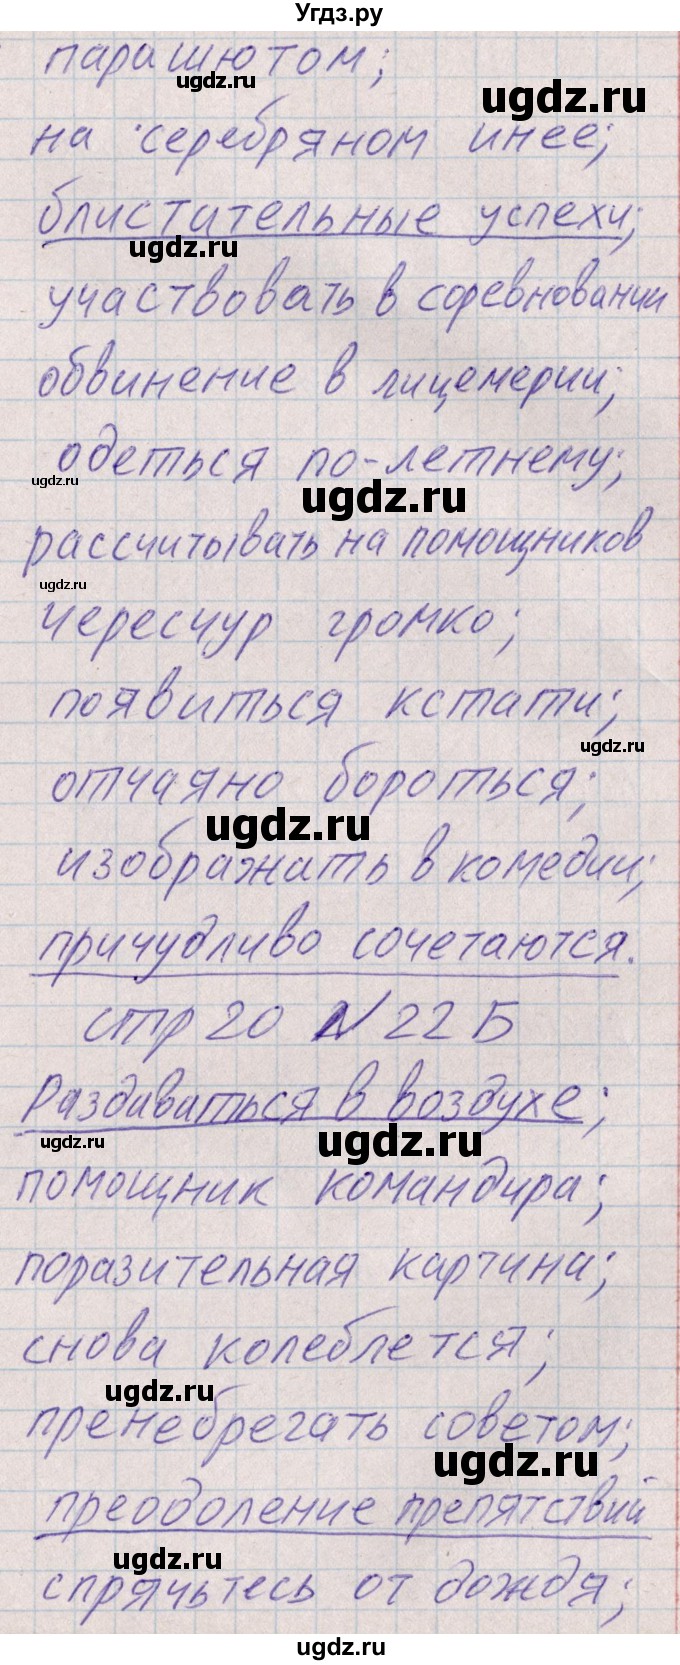 Угдз.ру
парашютом;
ugdz.ru
ugdz.ru
на серебряном инее;
блистательные успехи;
ugdz.ru
участвовать в соревновании
обвинение в лицемерии;
одеться по-летнему;
ugdz.ru
ugdz.ru
рассчитывать на помощников
ugdz.ru
чересчур громко;
появиться кстати;
ugdz.ru
отчаяно бороться;
ugdz.ru
изображать в комедии;
причудливо сочетаются.
стр 20 №22 Б
Раздаваться в воздухе;
ugdz.ru
ugdz.ru
помощник командира;
поразительная картина;
снова колеблется;
ugdz.ru
пренебрегать советом;
ugdz.ru
преодоление препятствий
ugdz.ru
спрячьтесь от дождя;
ugdz.ru